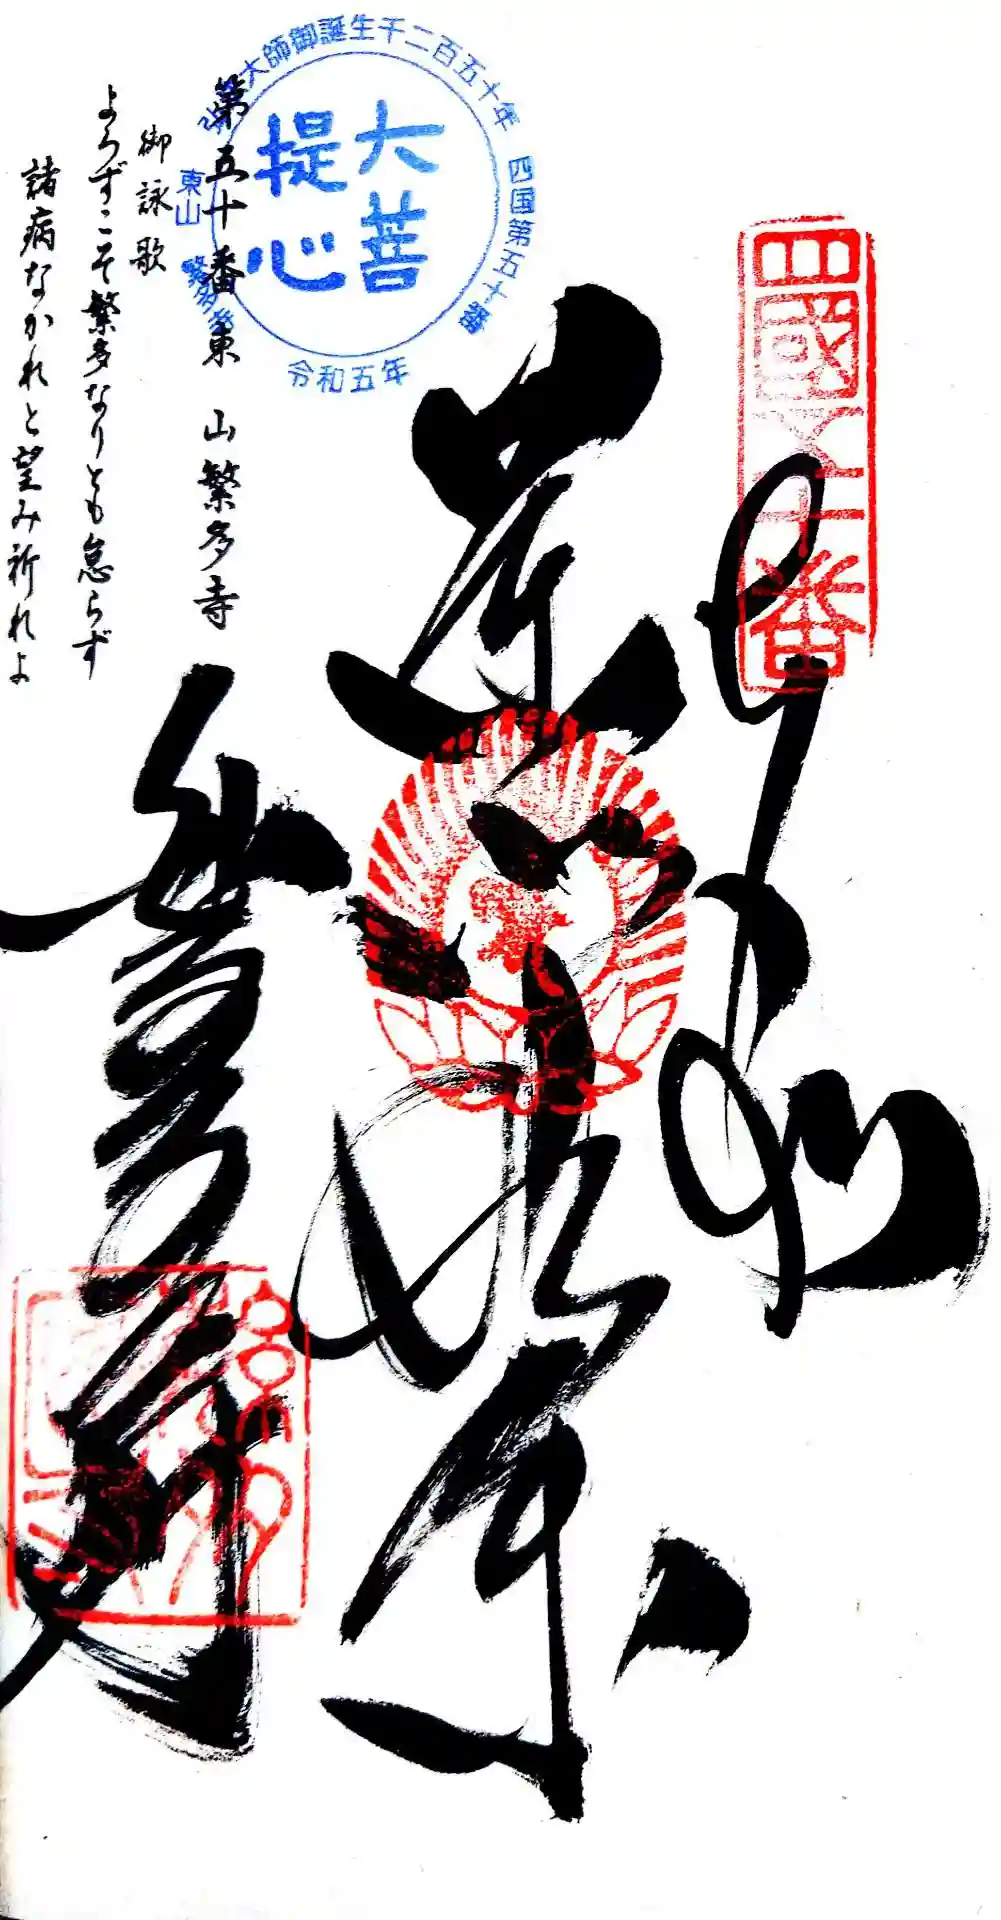 四國五十番
奉納
薬師如来
繁多寺
弘法大師御誕生千二百五十年
四国第五十番
大菩
提心
東山
繁多寺
令和五年
第五十番東山繁多寺
御詠歌
よろずこそ繁多なりとも怠らず
諸病なかれと望み祈れよ